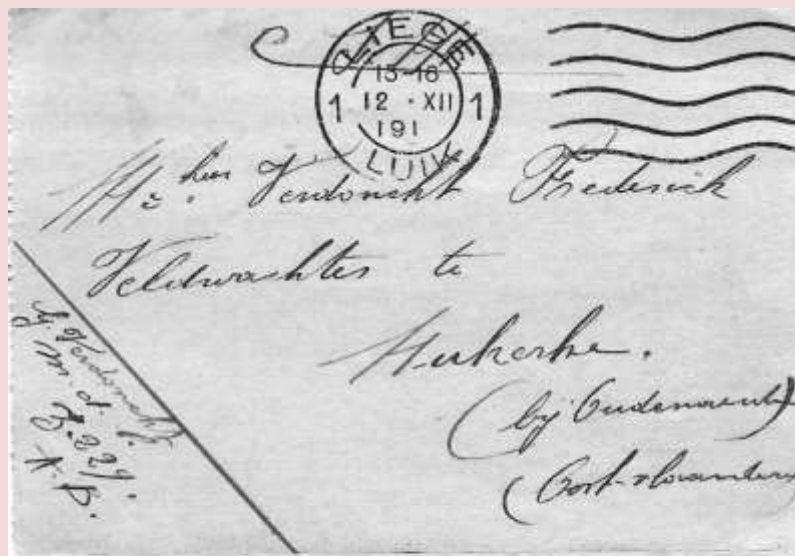 LIEGE
15-16
1 12 · XII 1
191
LUIK
Verdonckt Frederick
Veldwachter te
Nukerke.
(bij Oudenaarde)
(Oost-vlaanderen
Verdonckt
Z.229.